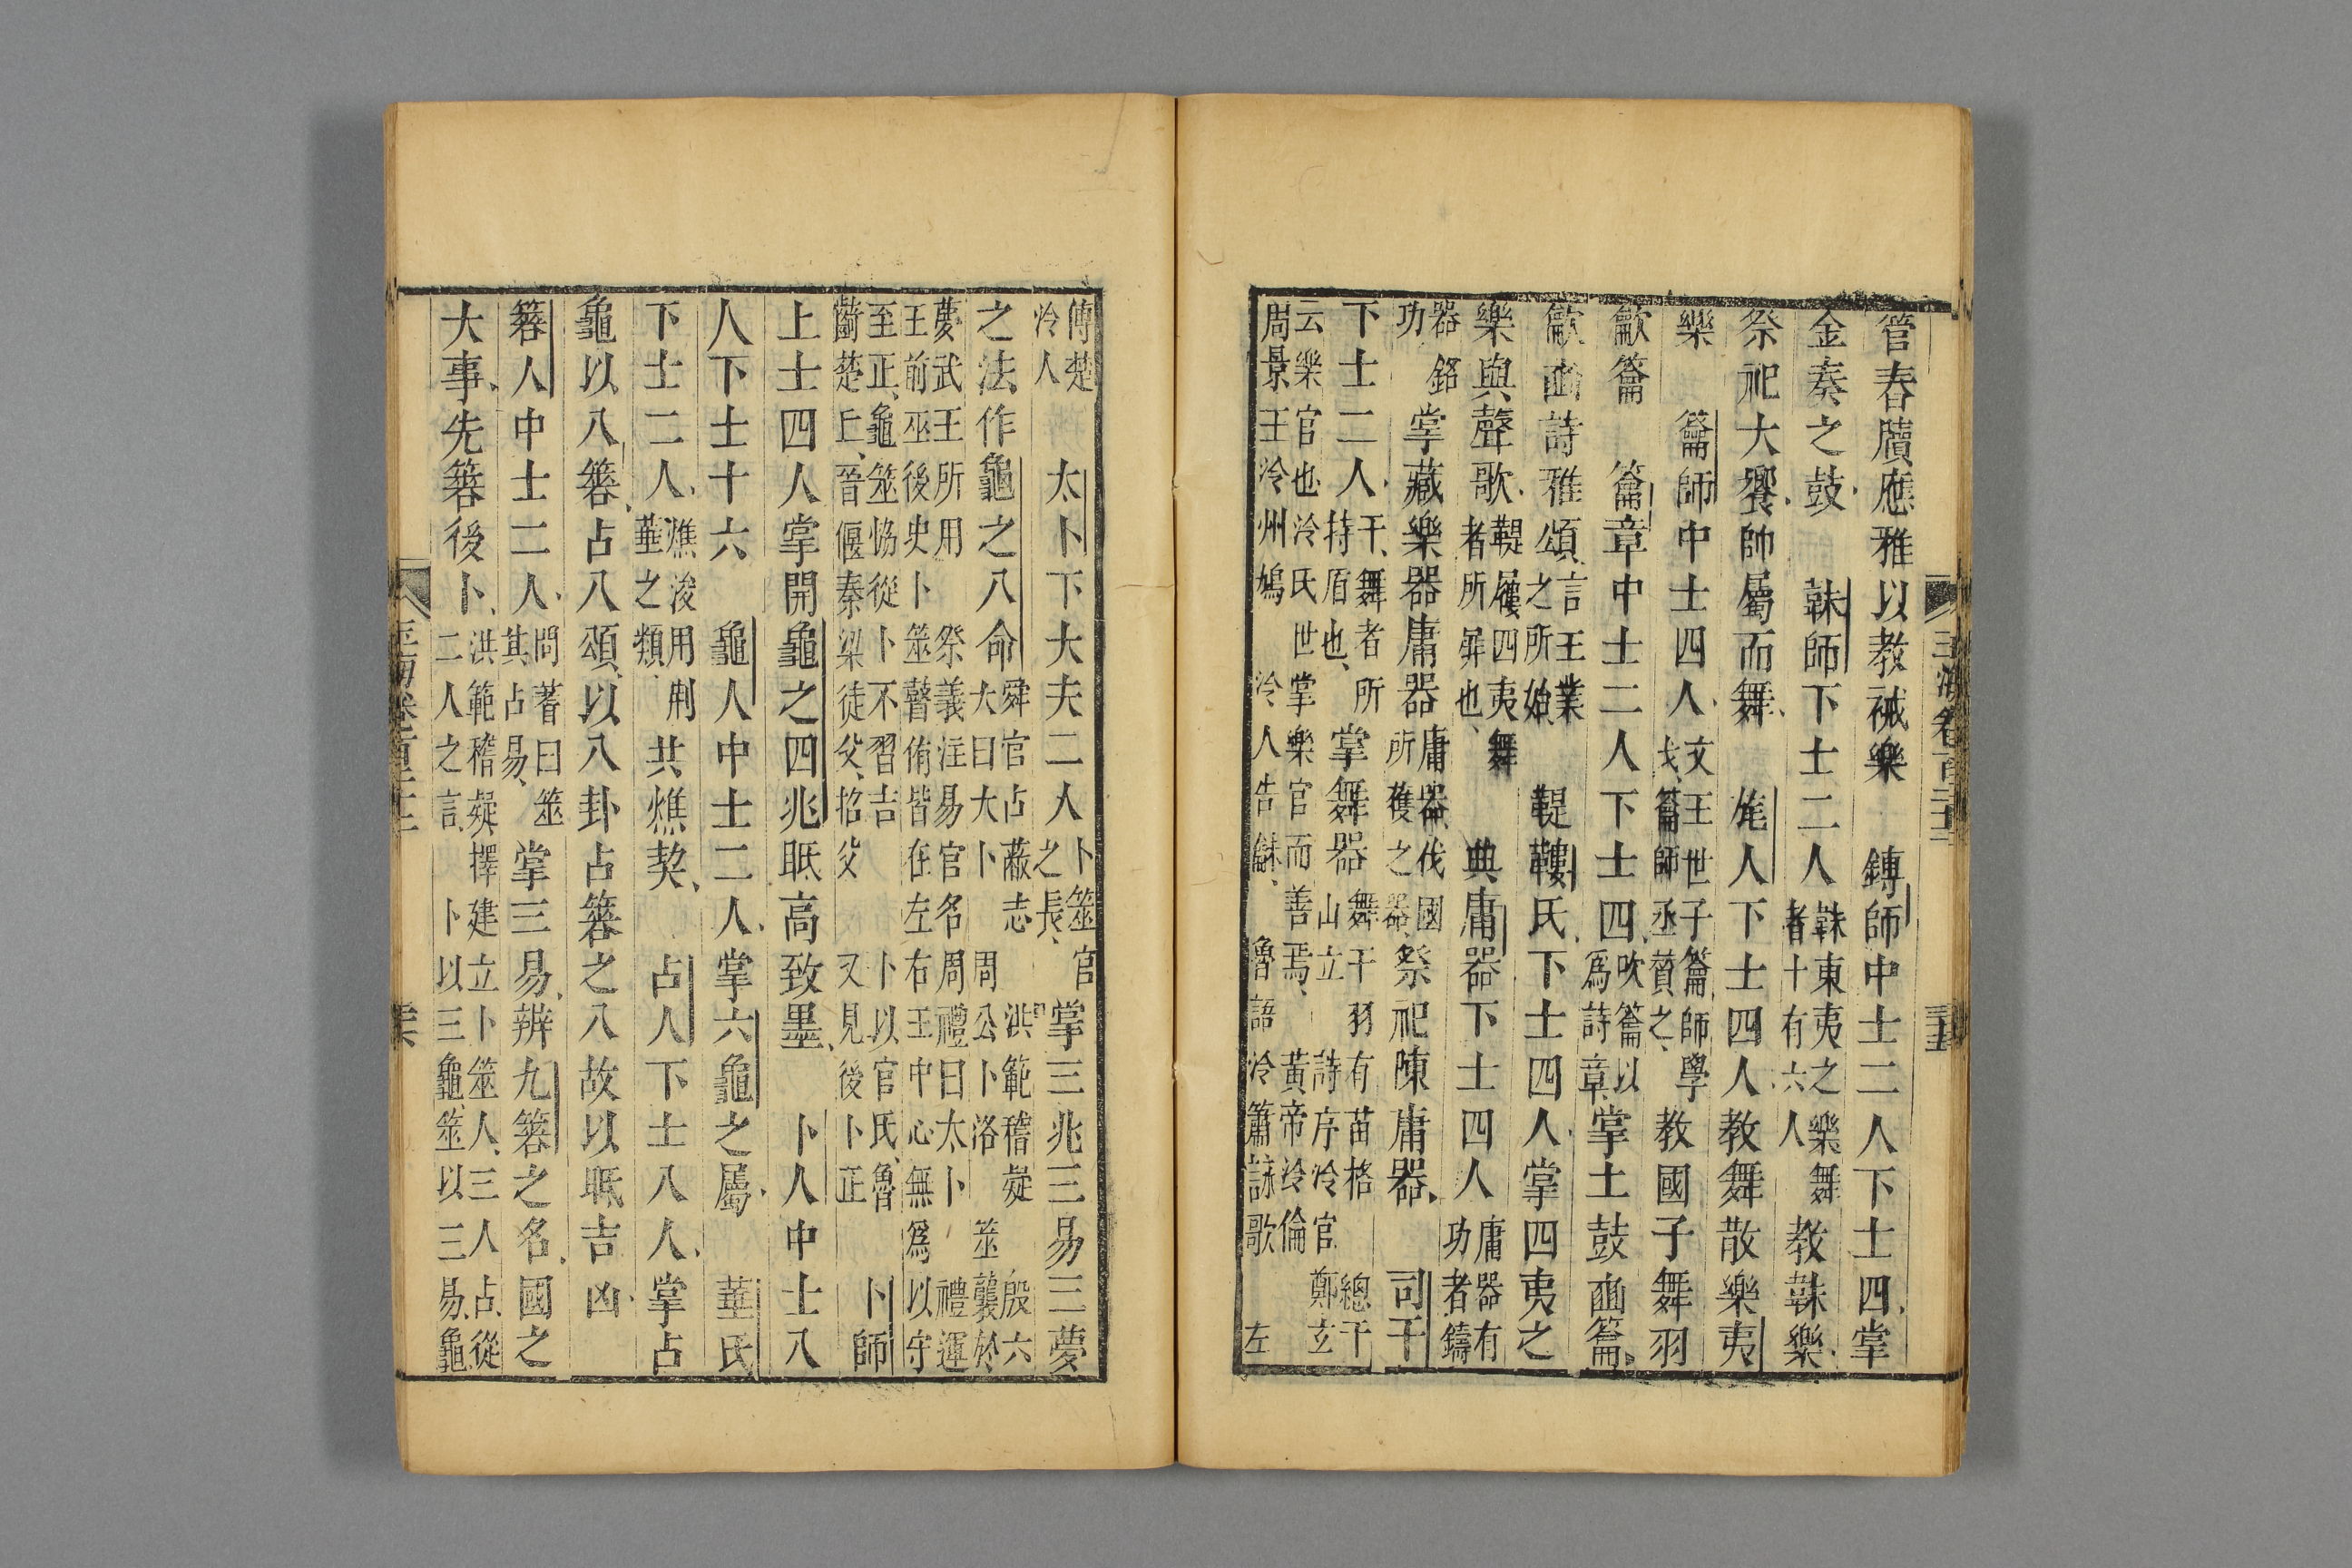 管舂牘應雅以教祴樂　鎛師中士二人下士四掌
金奏之鼓　韎師下士二人韎東夷之樂舞者十有六人教韎樂
祭祀大饗帥屬而舞　旄人下士四人教舞散樂夷
樂　籥師中士四人文王世子籥師學戈籥師丞贊之教國子舞羽
龡籥　籥章中士二人下士四吹籥以爲詩章掌土鼓豳籥
龡豳詩雅頌言王業之所始　鞮鞻氏下士四人掌四夷之
樂與聲歌鞮屨四夷舞者所屝也　典庸器下士四人庸器有功者鑄
器銘功掌藏樂器庸器庸器伐國所獲之器祭祀陳庸器　司干
下士二人干舞者所持盾也掌舞器舞干羽有苗格　總干山立　詩序泠官　鄭玄
云樂官也泠氏世掌樂官而善焉　黃帝泠倫
周景王泠州鳩　泠人告龢　魯語泠簫詠歌　左
玉海卷百二十三
傅楚泠人　太卜下大夫二人卜筮官之長掌三兆三易三夢
之法作龜之八命舜官占蔽志　洪範稽疑　殷六大曰大卜　周公卜洛　筮襲於
夢武王所用　祭義注易官名　周禮曰太卜　禮運
王前巫後史卜筮瞽侑皆在左右王中心無爲以守
至正龜筮恊從卜不習吉　卜以官氏魯
齮楚丘晉偃秦梁徒父招父　又見後卜正　卜師
上士四人掌開龜之四兆眡高致墨　卜人中士八
人下士十六　龜人中士二人掌六龜之屬　菙氏
下士二人燋浚用荆菙之類共燋契　占人下士八人掌占
龜以八簭占八頌以八卦占簭之八故以眡吉凶
簭人中士二人問蓍曰筮其占易掌三易辨九簭之名國之
大事先簭後卜洪範稽疑擇建立卜筮人三人占從二人之言　卜以三龜筮以三易龜